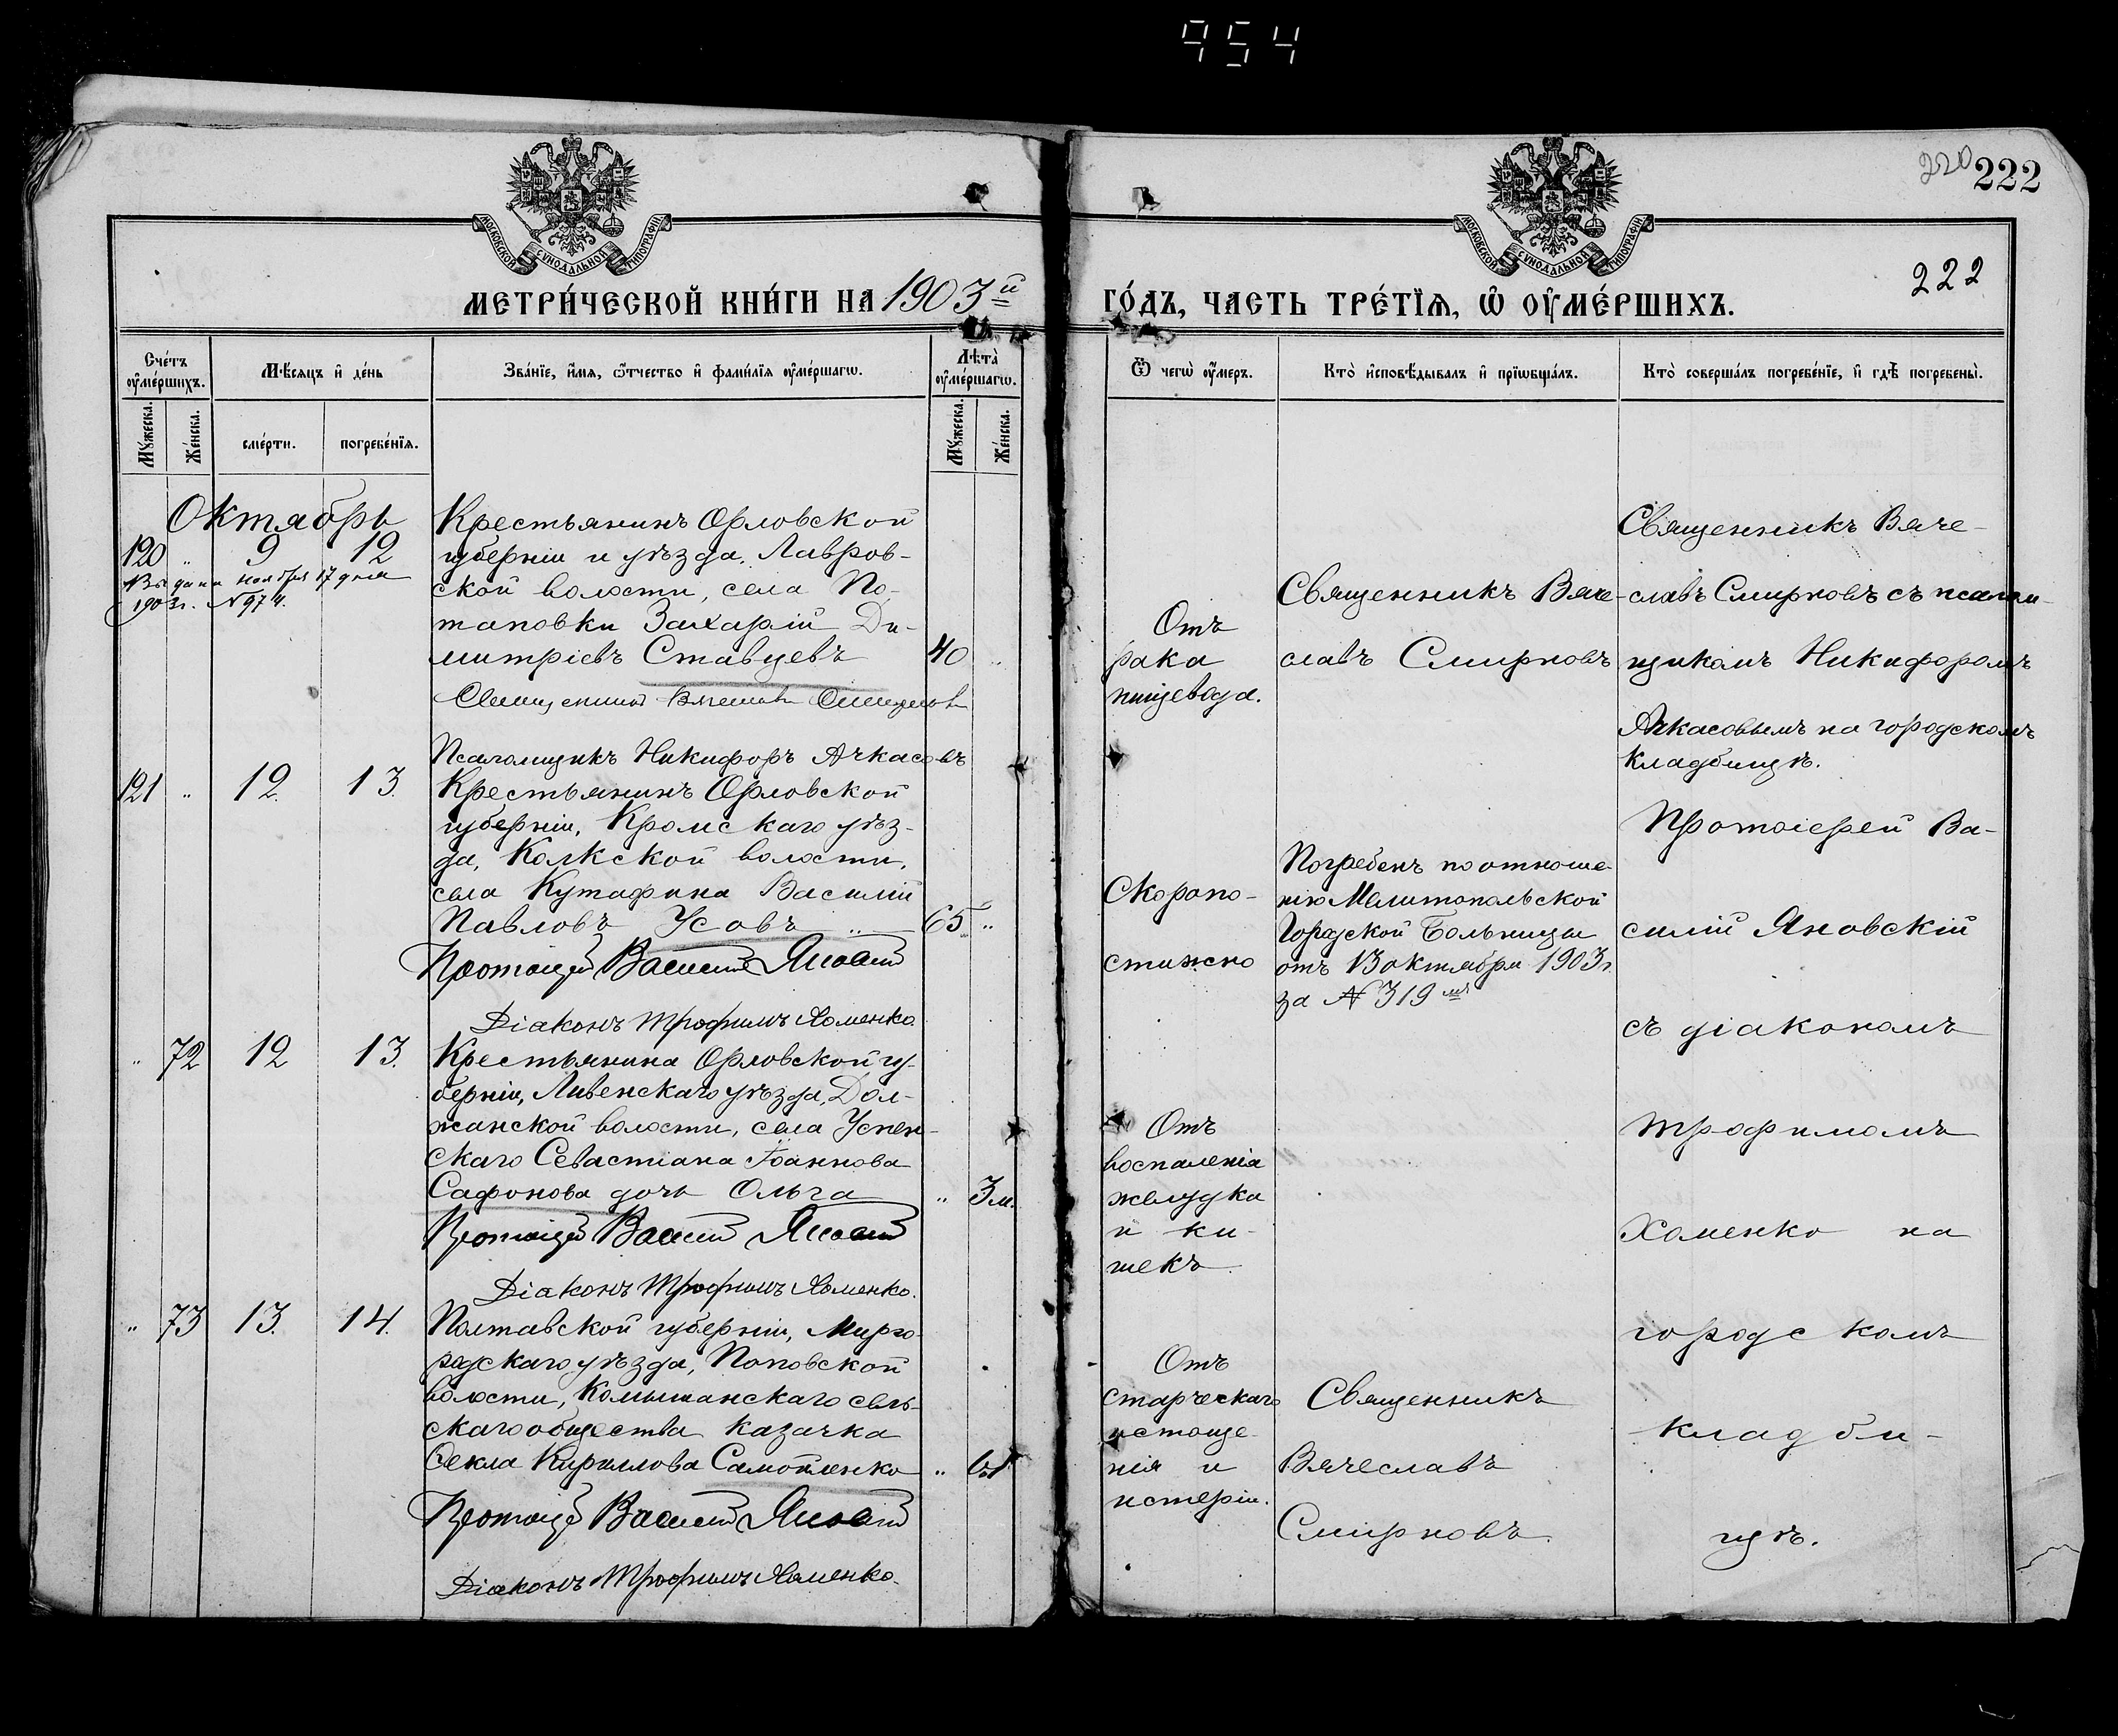 954
220 222
222
МОСКОВСКОЙ СѴНОДАЛЬНОЙ ТИПОГРАФІИ
МОСКОВСКОЙ СѴНОДАЛЬНОЙ ТИПОГРАФІИ
МЕТРИ́ЧЕСКОЙ КНИ́ГИ НА 1903й
ГО́ДЪ, ЧАСТЬ ТРЕ́ТЇѦ, Ѿ ОУ҆МЕ́РШИХЪ.
Сче́тъ оу҆ме́ршихъ.
Мꙋ́жеска.
Же́нска.
Мѣ́сѧцъ и҆ де́нь
сме́рти.
погребе́нїѧ.
Зва́нїе, и҆́мѧ, ѻ҆́тчество и҆ фами́лїѧ оу҆ме́ршагѡ.
Лѣта̀ оу҆ме́ршагѡ.
Мꙋ́жеска.
Же́нска.
Ѿ чегѡ̀ оу҆́меръ.
Кто̀ и҆сповѣ́дывалъ и҆ прїѡбща́лъ.
Кто̀ соверша́лъ погребе́нїе, и҆ гдѣ̀ погребены̀.
Октябрь
120 " 9 12
Выданы ноября 17 дня
1903г. №974.
Крестьянинъ Орловской
губерніи и уѣзда, Лавров-
ской волости, села По-
таповки Захарій Ди-
митріевъ Ставцевъ 40 "
Священникъ Вячеславъ Смирновъ
Псаломщикъ Никифоръ Ачкасовъ
Отъ
рака
пищевода.
Священникъ Вяче-
славъ Смирновъ
Священникъ Вяче-
славъ Смирновъ съ псалом-
щикомъ Никифоромъ
Ачкасовымъ на городскомъ
кладбищѣ.
121 " 12. 13.
Крестьянинъ Орловской
губерніи, Кромскаго уѣз-
да, Колкской волости,
села Кутафина Василій
Павловъ Усовъ " 65 "
Протоіерей Василій Яновскій
Діаконъ Трофимъ Хоменко.
Скоропо-
стижно
Погребенъ по отноше-
нію Мелитопольской
Городской Больницы
отъ 13 октября 1903г.
за № 319мъ
Протоіерей Ва-
силій Яновскій
съ діакономъ
Трофимомъ
Хоменко на
городскомъ
кладби-
щѣ.
" 72 12 13.
Крестьянина Орловской гу-
берніи, Ливенскаго уѣзда, Дол-
жанской волости, села Успен-
скаго Севастіана Іоаннова
Сафонова дочь Ольга " 3 м.
Протоіерей Василій Яновскій
Діаконъ Трофимъ Хоменко.
Отъ
воспаленія
желудка
и ки-
шекъ.
" 73 13. 14.
Полтавской губерніи, Мирго-
родскаго уѣзда, Поповской
волости, Комышанскаго сель-
скаго общества казачка
Ѳекла Кириллова Самойленко "
Протоіерей Василій Яновскій
Діаконъ Трофимъ Хоменко.
Отъ
старческаго
истоще-
нія и
истеріи.
Священникъ
Вячеславъ
Смирновъ.